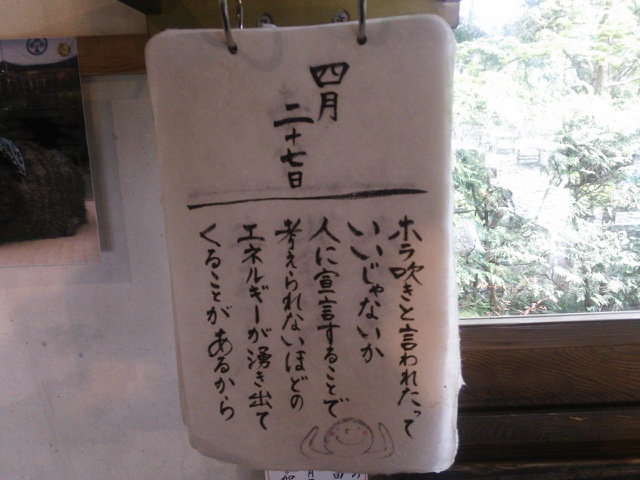 四月
二十七日
ホラ吹きと言われたって
いいじゃないか
人に宣言することで
考えられないほどの
エネルギーが湧き出て
くることがあるから